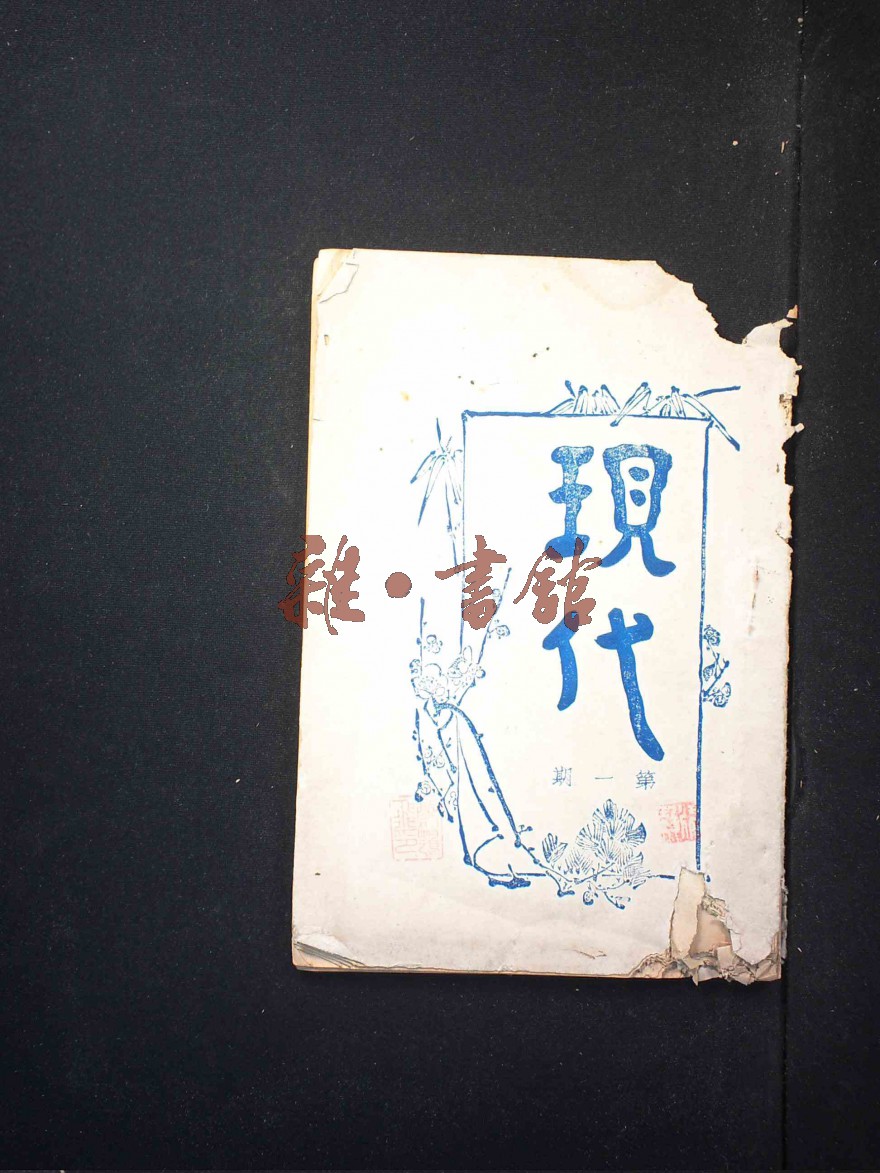 現代
第一期
雜·書館